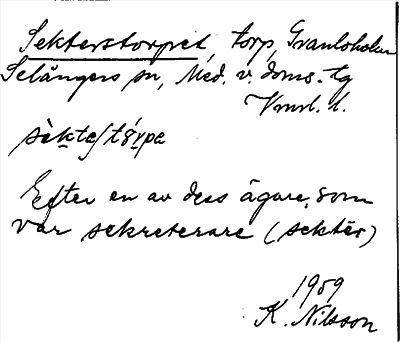 Sekterstorpet, torp, Granloholm
Selångers sn, Med. v. doms. tg
Vnrl. l.
sèkteʃtórpe
Efter en av dess ägare, som
var sekreterare (sektēr)
1959
K. Nilsson